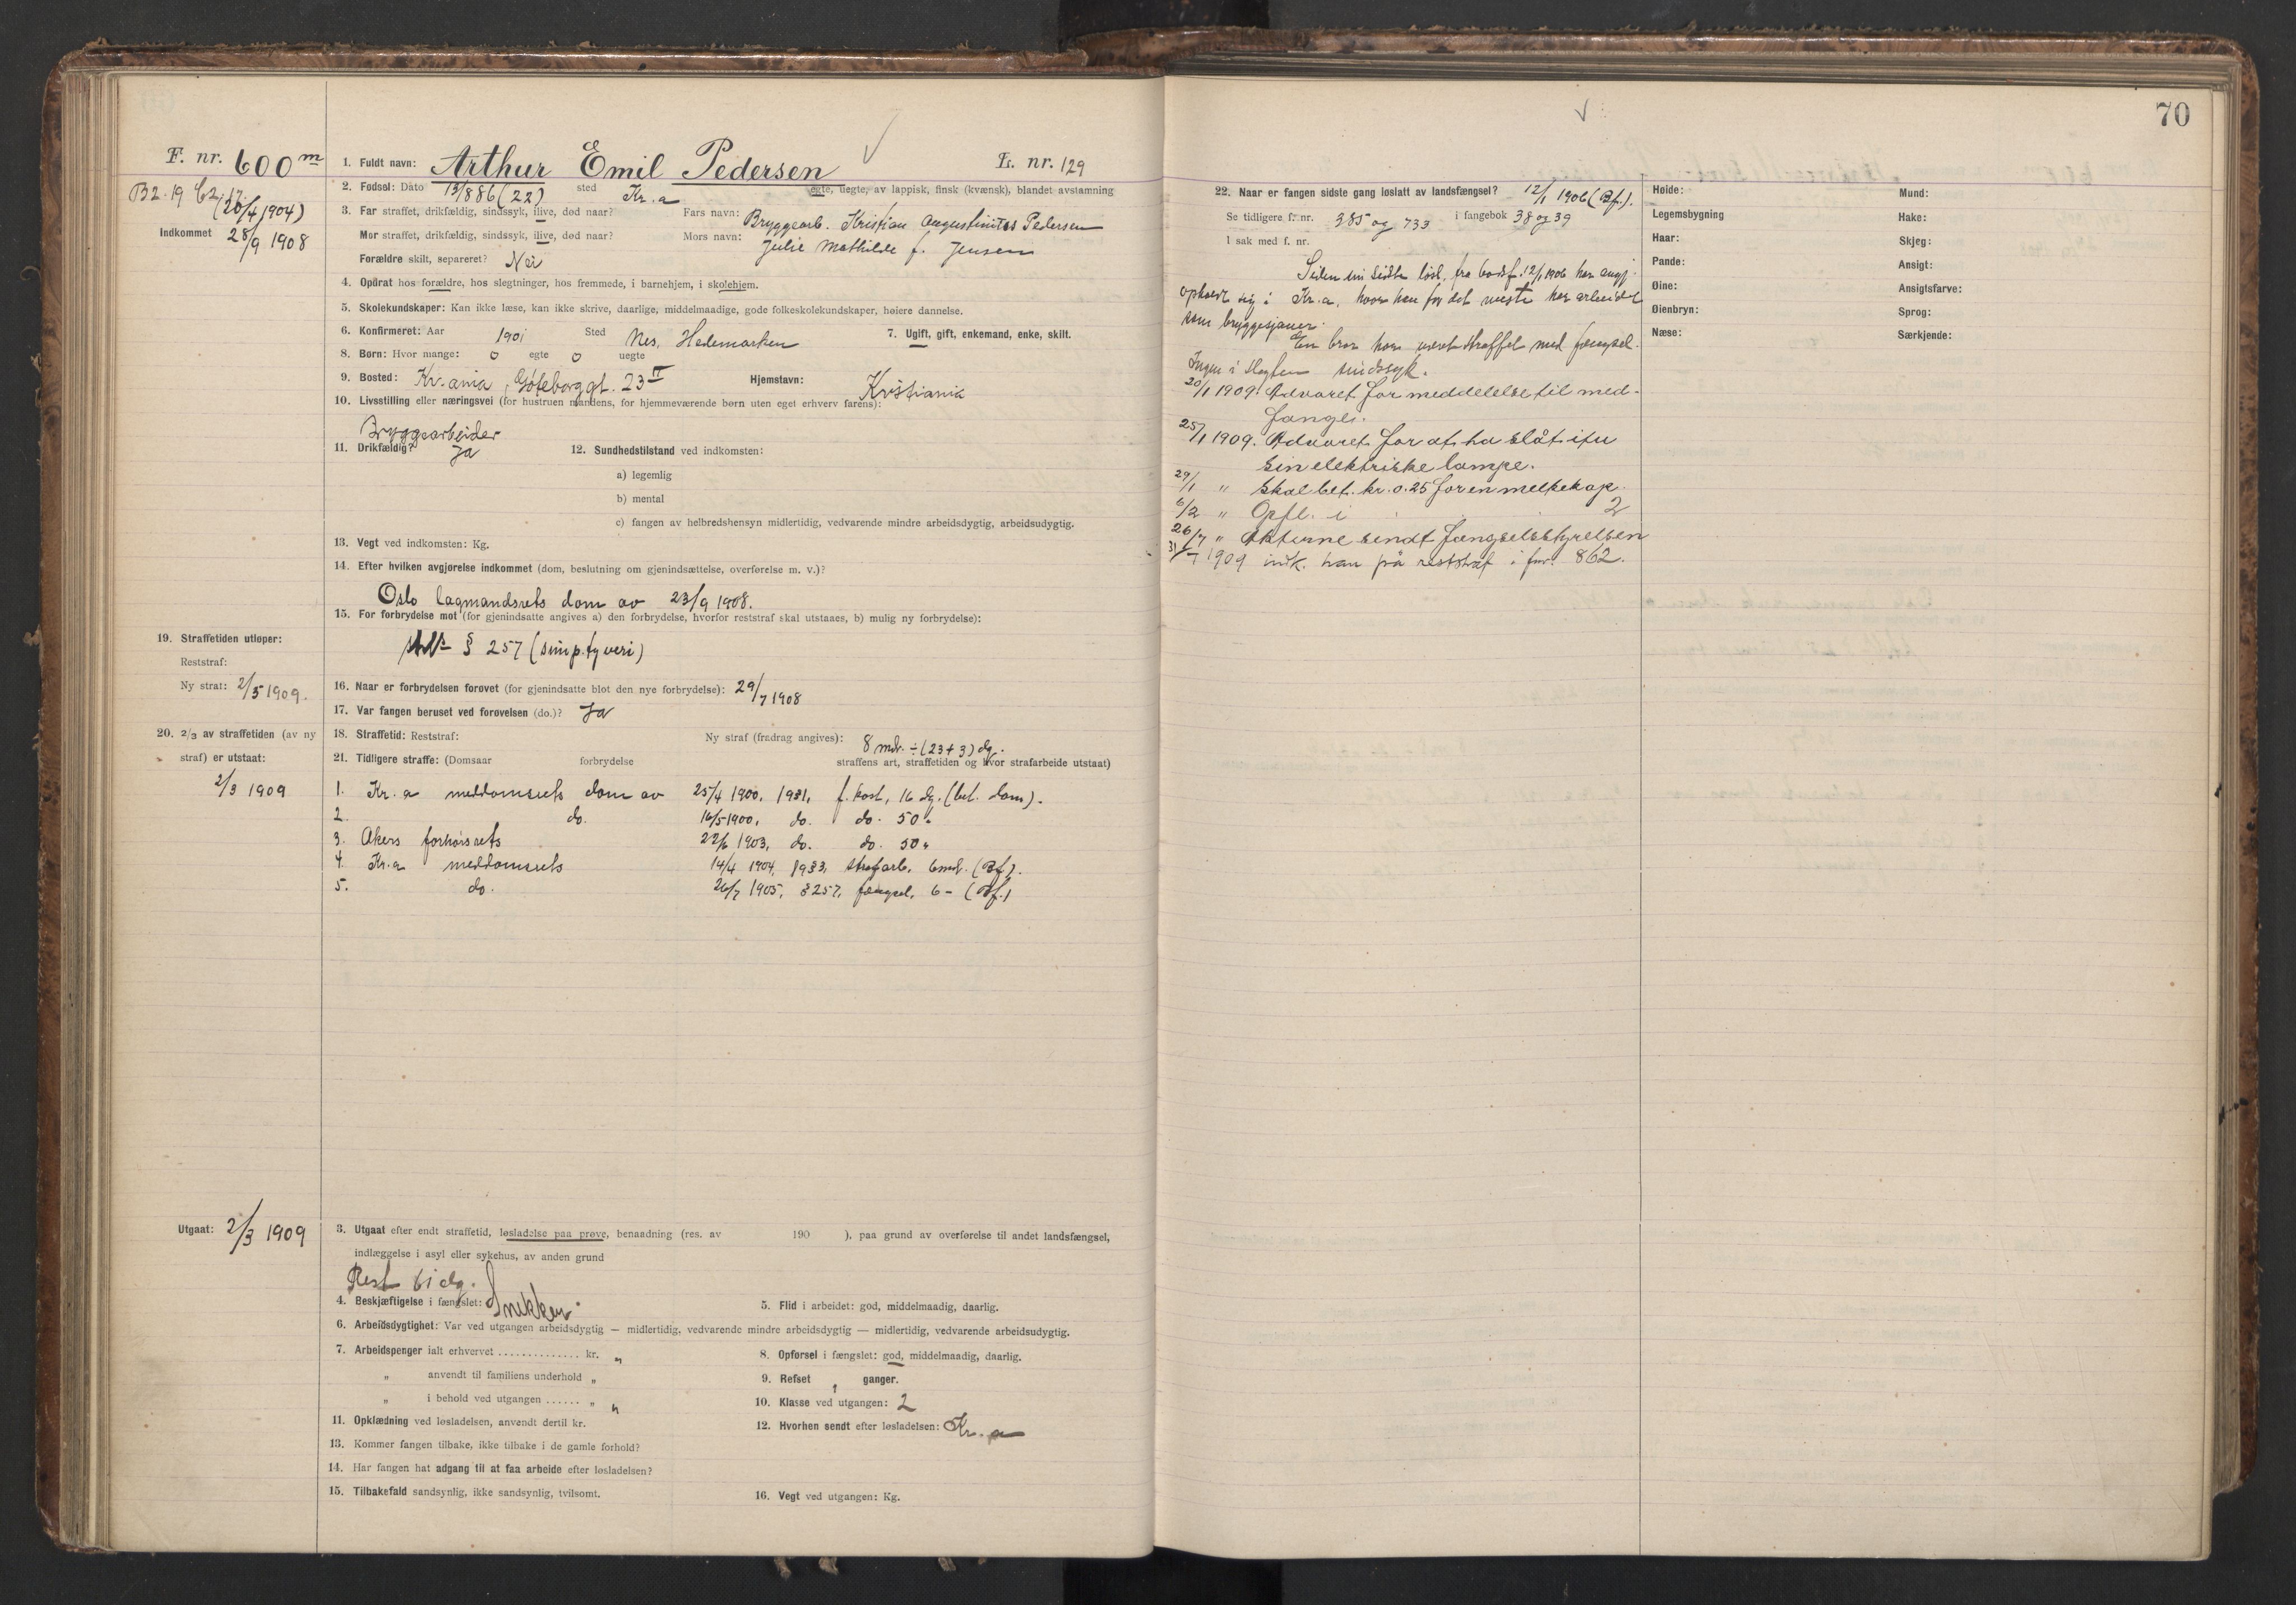 70
F. nr. 600 m
B2. 19 C2. 17.
(20/4 1904)
Indkommet 28/9 1908
1. Fuldt navn: Arthur Emil Pedersen
L. nr. 129
2. Fødsel: Dato 13/8 86 (22) sted Kr.a egte, uegte, av lappisk, finsk (kvænsk), blandet avstamning
3. Far straffet, drikfældig, sindssyk, ilive, død naar? Fars navn: Bryggearb. Kristian Augustinius Pedersen
Mor straffet, drikfældig, sindssyk, ilive, død naar? Mors navn: Julie Mathilde f. Jensen
Forældre skilt, separeret? Nei
4. Opdrat hos forældre, hos slegtninger, hos fremmede, i barnehjem, i skolehjem.
5. Skolekundskaper: Kan ikke læse, kan ikke skrive, daarlige, middelmaadige, gode folkeskolekundskaper, høiere dannelse.
6. Konfirmeret: Aar 1901 Sted Nes, Hedemarken 7. Ugift, gift, enkemand, enke, skilt.
8. Børn: Hvor mange: 0 egte 0 uegte
9. Bosted: Kr.ania, Göteborggt. 23 II Hjemstavn: Kristiania
10. Livsstilling eller næringsvei (for hustruen mandens, for hjemmeværende børn uten eget erhverv farens):
Bryggearbeider
11. Drikfældig? Ja 12. Sundhedstilstand ved indkomsten:
a) legemlig
b) mental
c) fangen av helbredshensyn midlertidig, vedvarende mindre arbeidsdygtig, arbeidsudygtig.
13. Vegt ved indkomsten: Kg.
14. Efter hvilken avgjørelse indkommet (dom, beslutning om gjenindsættelse, overførelse m. v.)?
Oslo lagmandsrets dom av 23/9 1908.
15. For forbrydelse mot (for gjenindsatte angives a) den forbrydelse, hvorfor reststraf skal utstaaes, b) mulig ny forbrydelse):
§ 257 (simp. tyveri)
19. Straffetiden utløper:
Reststraf:
Ny straf: 2/5 1909.
16. Naar er forbrydelsen forøvet (for gjenindsatte blot den nye forbrydelse): 29/7 1908
17. Var fangen beruset ved forøvelsen (do.)? Ja
20. 2/3 av straffetiden (av ny
straf) er utstaat:
2/3 1909
18. Straffetid: Reststraf: Ny straf (fradrag angives): 8 mdr. ÷ (23 + 3) dg.
21. Tidligere straffe: (Domsaar forbrydelse straffens art, straffetiden og hvor strafarbeide utstaat)
1. Kr.a meddomsrets dom av 25/4 1900, 19§1, f. kost, 16 dg. (bet. dom).
2. do. 16/5 1900, do. do. 50 "
3. Akers forhørsrets 22/6 1903, do. do. 50 "
4. Kr.a meddomsrets 14/4 1904, 19§3, strafarb. 6 md. (Bf).
5. do. 26/7 1905, § 257, fængsel, 6 - (Bf.)
Utgaat: 2/3 1909
3. Utgaat efter endt straffetid, løsladelse paa prøve, benaadning (res. av 190 ), paa grund av overførelse til andet landsfængsel,
indlæggelse i asyl eller sykehus, av anden grund
Rest 61 dg.
4. Beskjæftigelse i fængslet: Snekker 5. Flid i arbeidet: god, middelmaadig, daarlig.
6. Arbeidsdygtighet: Var ved utgangen arbeidsdygtig — midlertidig, vedvarende mindre arbeidsdygtig — midlertidig, vedvarende arbeidsudygtig.
7. Arbeidspenger ialt erhvervet .............. kr. " 8. Opførsel i fængslet: god, middelmaadig, daarlig.
" anvendt til familiens underhold " 9. Refset " ganger.
" i behold ved utgangen ...... " " 10. Klasse ved utgangen: 2
11. Opklædning ved løsladelsen, anvendt dertil kr. 12. Hvorhen sendt efter løsladelsen: Kr.a
13. Kommer fangen tilbake, ikke tilbake i de gamle forhold?
14. Har fangen hat adgang til at faa arbeide efter løsladelsen?
15. Tilbakefald sandsynlig, ikke sandsynlig, tvilsomt. 16. Vegt ved utgangen: Kg.
22. Naar er fangen sidste gang løslatt av landsfængsel? 12/1 1906 (Bf.).
Se tidligere f. nr. 385 og 733 i fangebok 38 og 39
I sak med f. nr.
Siden sin sidste løsl. fra bodsf. 12/1 1906 har angj.
opholdt sig i Kr.a, hvor han for det meste har arbeidet
som bryggesjauer.
En bror har været straffet med fængsel.
Ingen i slegten sindssyk.
20/1 1909. Advaret for meddelelse til med-
fange.
25/1 1909. Advaret for at ha slåt itu
sin elektriske lampe.
29/1 " Skal bet. kr. 0.25 for en melkekop.
6/2 " Opfl. i 2
26/7 " Akterne sendt fængselsstyrelsen
31/7 1909 indk. han på reststraf i fnr. 862.
Høide:
Legemsbygning
Haar:
Pande:
Øine:
Øienbryn:
Næse:
Mund:
Hake:
Skjeg:
Ansigt:
Ansigtsfarve:
Sprog:
Særkjende: